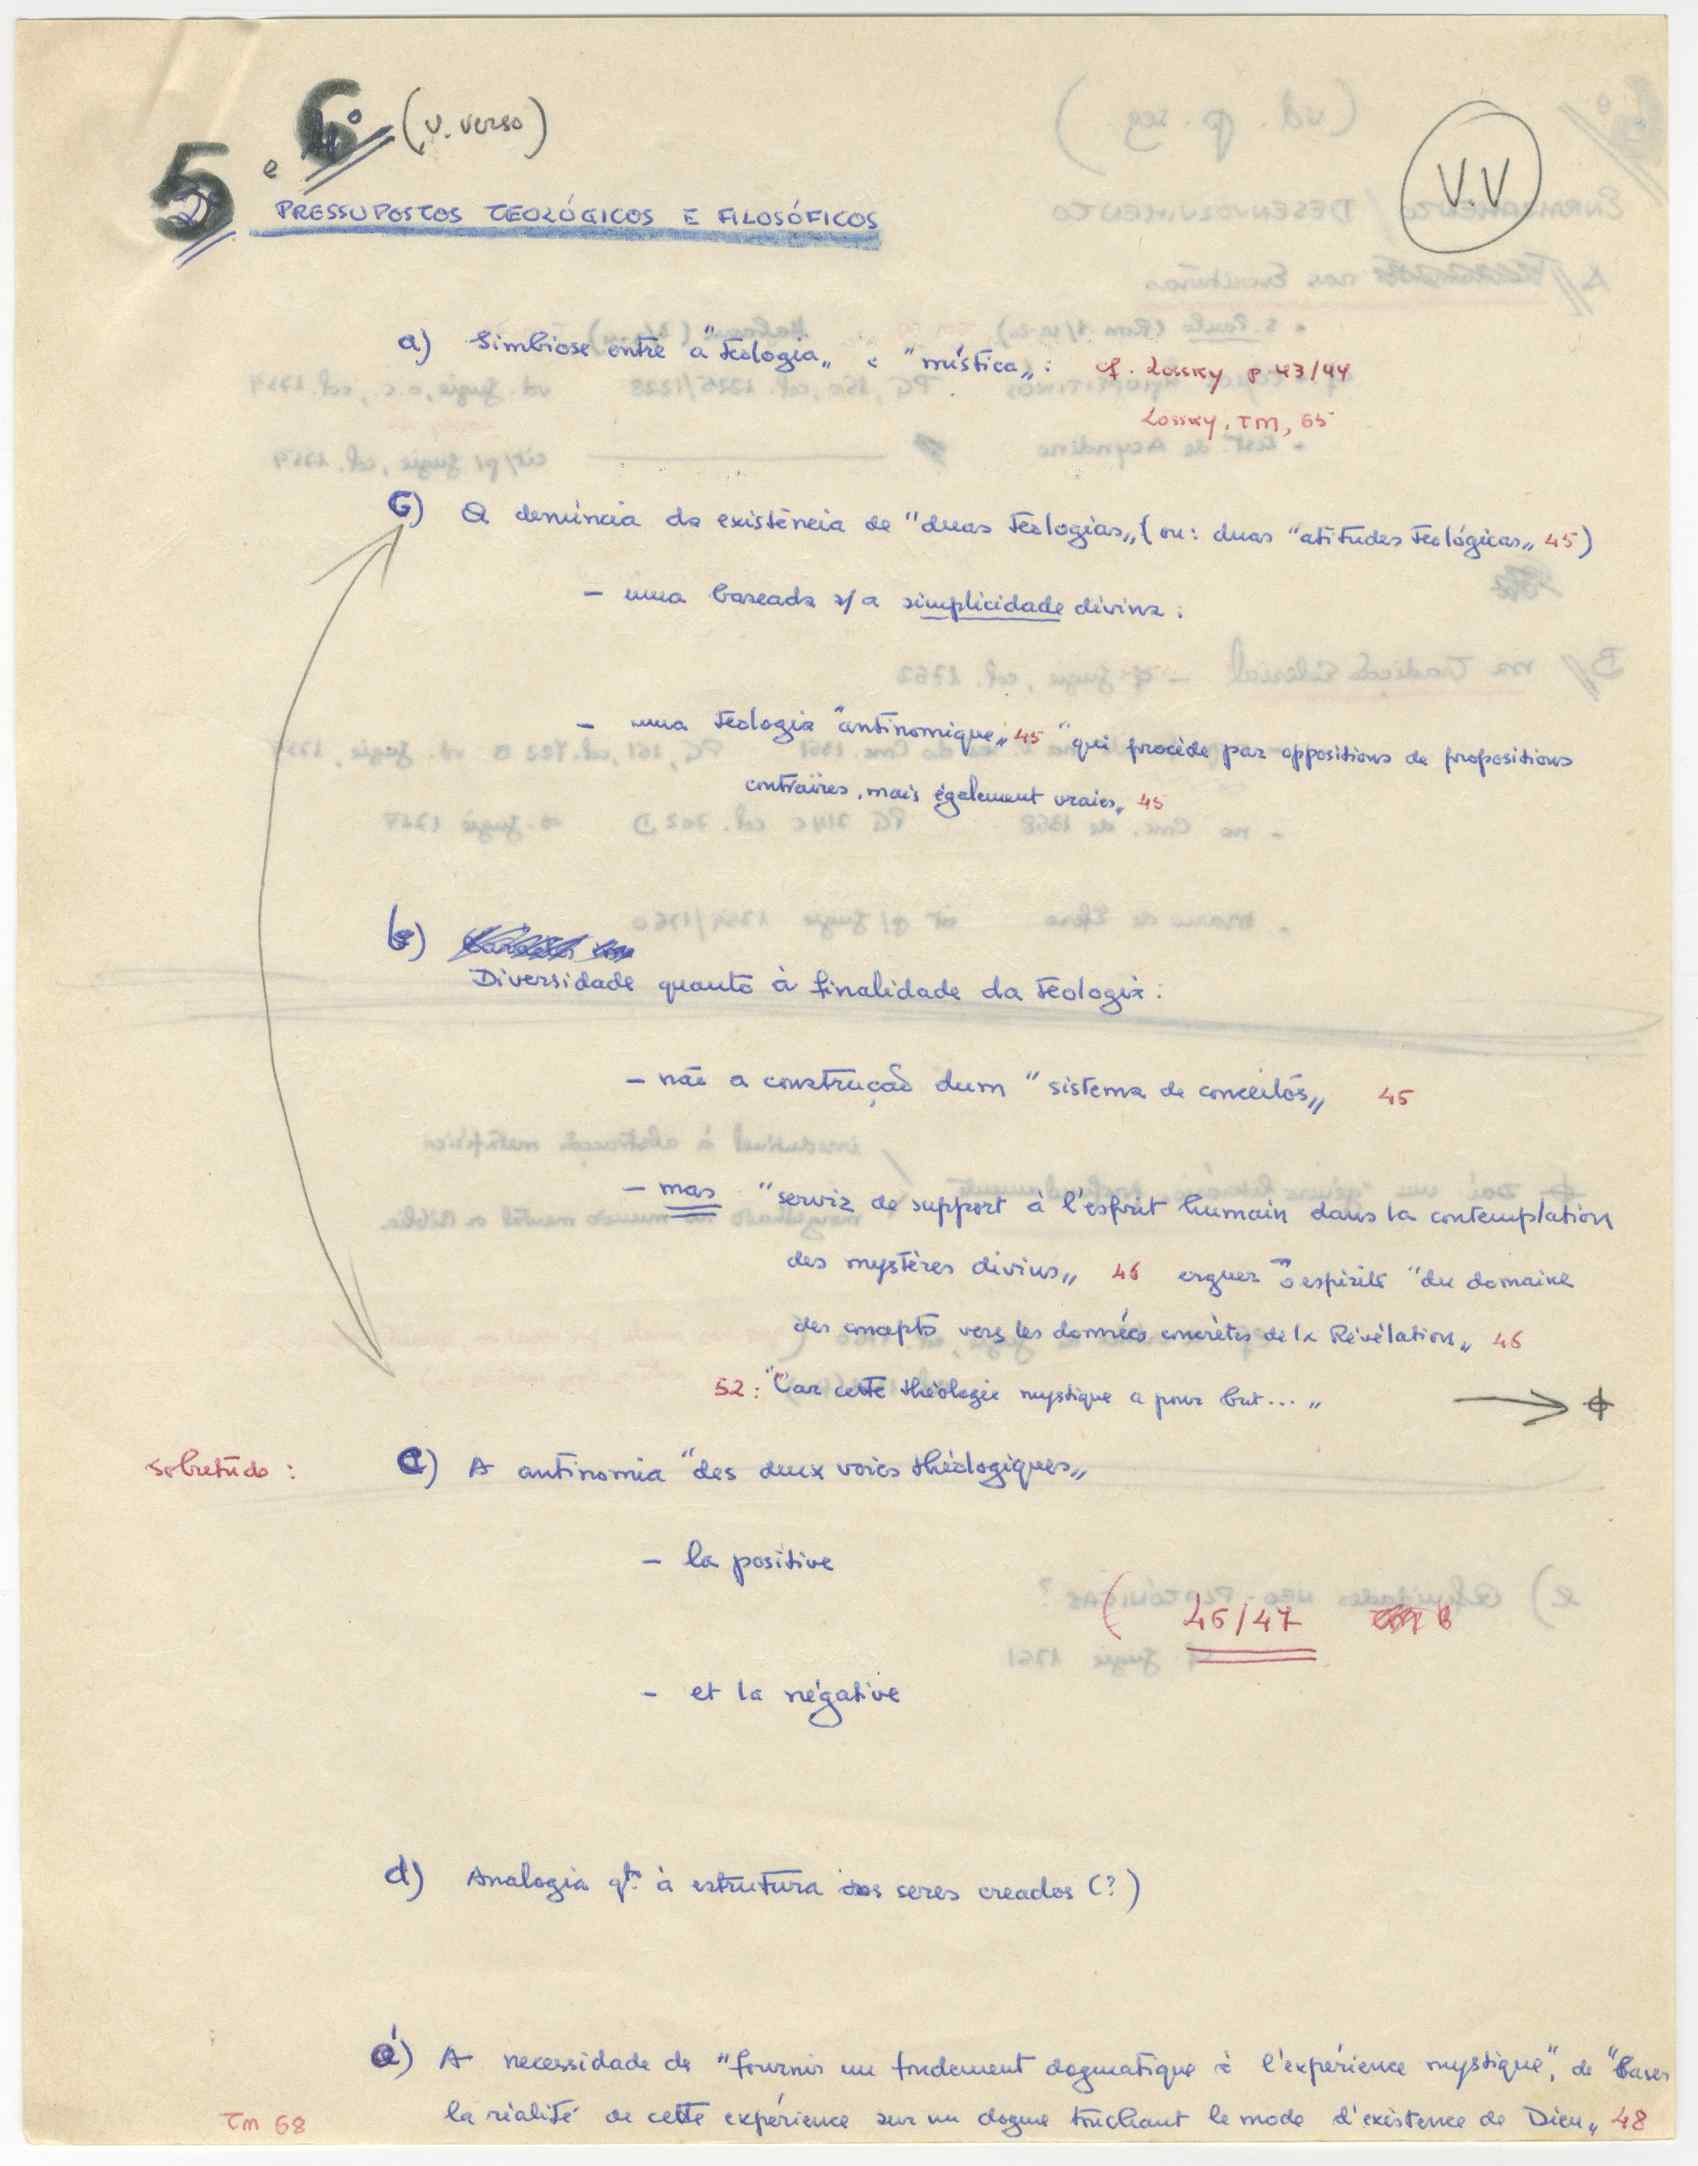 5 e 6º (v. verso)
V.V
PRESSUPOSTOS TEOLÓGICOS E FILOSÓFICOS
a) Simbiose entre a "teologia„ e "mística„: cf. Lossky p 43/44
Lossky, TM, 65
G) A denúncia da existência de "duas teologias„ (ou: duas "atitudes teológicas„ 45)
- uma baseada s/ a simplicidade divina:
- uma teologia "antinomique„ 45 "qui procède par oppositions de propositions
contraires, mais également vraies„ 45
b)
Diversidade quanto à finalidade da teologia:
- não a construção dum "sistema de conceitos„ 45
- mas "servir de support à l'esprit humain dans la contemplation
des mystères divins„ 46 erguer o espírito "du domaine
des concepts vers les données concrètes de la Révélation„ 46
52: "Car cette théologie mystique a pour but...„ → ϕ
sobretudo: c) A antinomia "des deux voies théologiques„
- la positive
( 46/47
- et la négative
d) Analogia qto. à estrutura dos seres creados (?)
e') A necessidade de "fournir un fondement dogmatique à l'expérience mystique", de "baser
TM 68 la réalité de cette expérience sur un dogme touchant le mode d'existence de Dieu„ 48